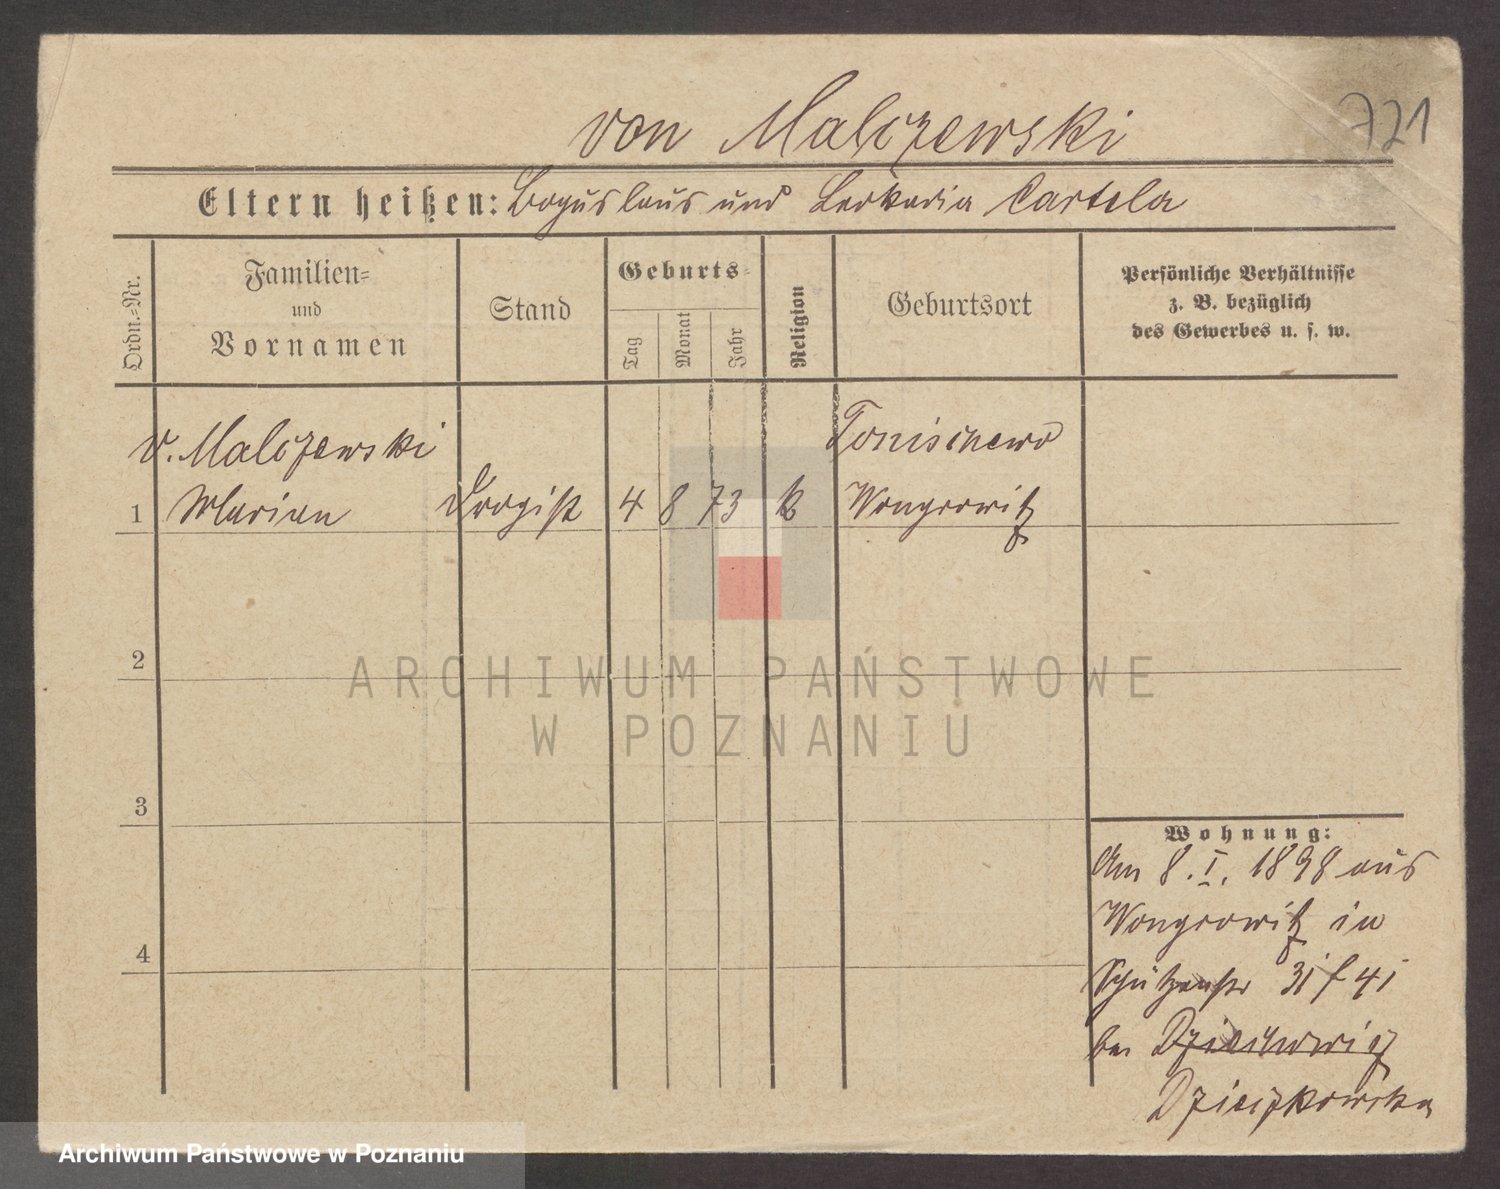 von Malczewski
721
Eltern heißen: Boguslaus und Leokadia Cartela
Ordn.=Nr.
Familien=
und
Vornamen
Stand
Geburts=
Tag
Monat
Jahr
Religion
Geburtsort
Persönliche Verhältnisse
z. B. bezüglich
des Gewerbes u. s. w.
v. Malczewski
Tonischewo
1 Marian Drogist 4 8 73 k Wongrowitz
2
3
4
Wohnung:
Am 8. I. 1898 aus
Wongrowitz in
Schützenstr 31
bei
Dzieczkowska
ARCHIWUM PAŃSTWOWE
W POZNANIU
Archiwum Państwowe w Poznaniu